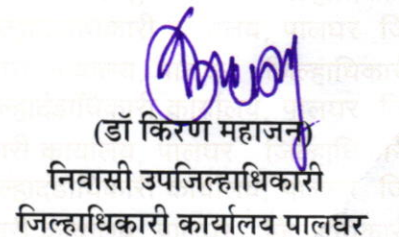 (डॉ किरण महाजन)
निवासी उपजिल्हाधिकारी
जिल्हाधिकारी कार्यालय पालघर